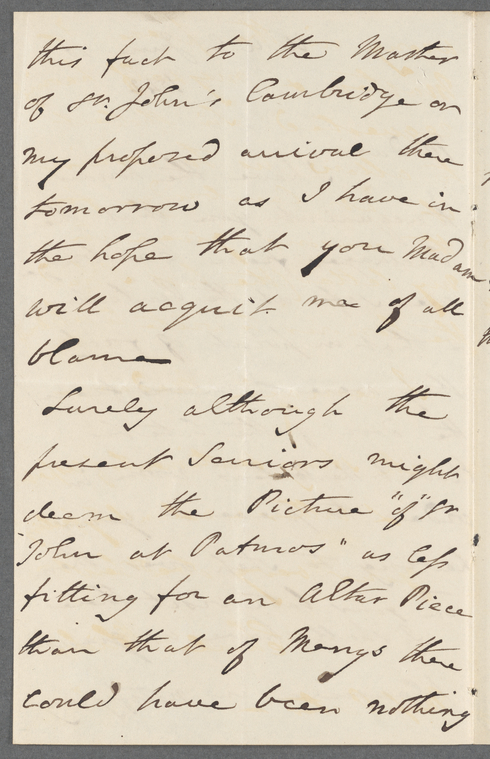 this fact to the Master
of St. John's Cambridge on
my proposed arrival there
tomorrow as I have in
the hope that you Madam
will acquit me of all
blame
Surely although the
present Seniors might
deem the Picture "of" St
"John at Patmos" as less
fitting for an Altar Piece
than that of Mengs there
could have been nothing